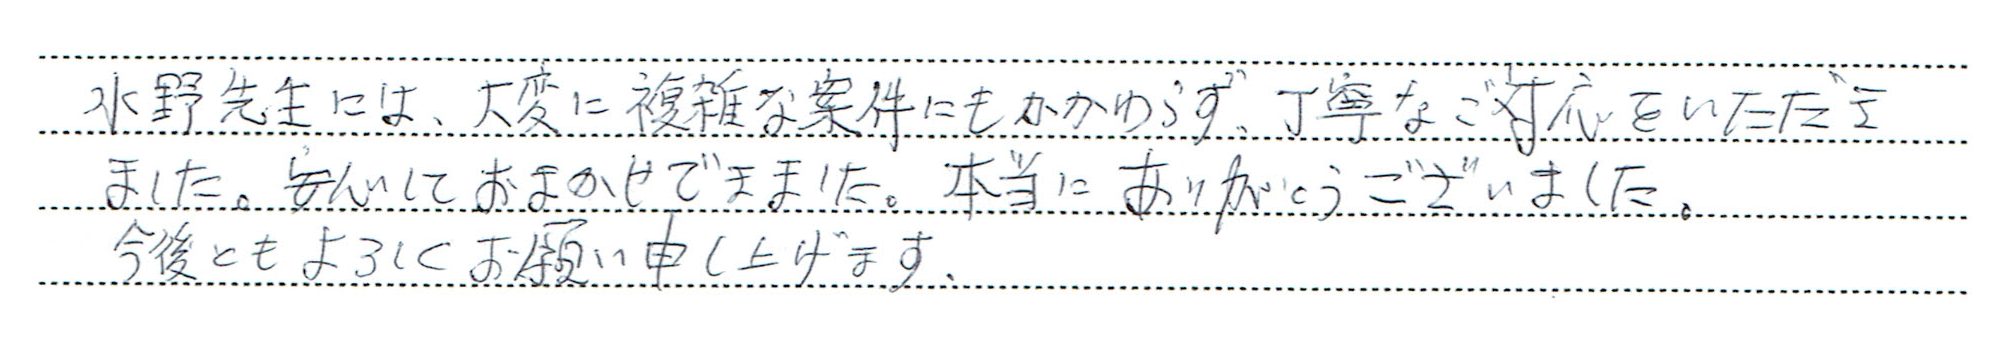 水野先生には、大変に複雑な案件にもかかわらず、丁寧なご対応をいただき
ました。安心しておまかせできました。本当にありがとうございました。
今後ともよろしくお願い申し上げます、